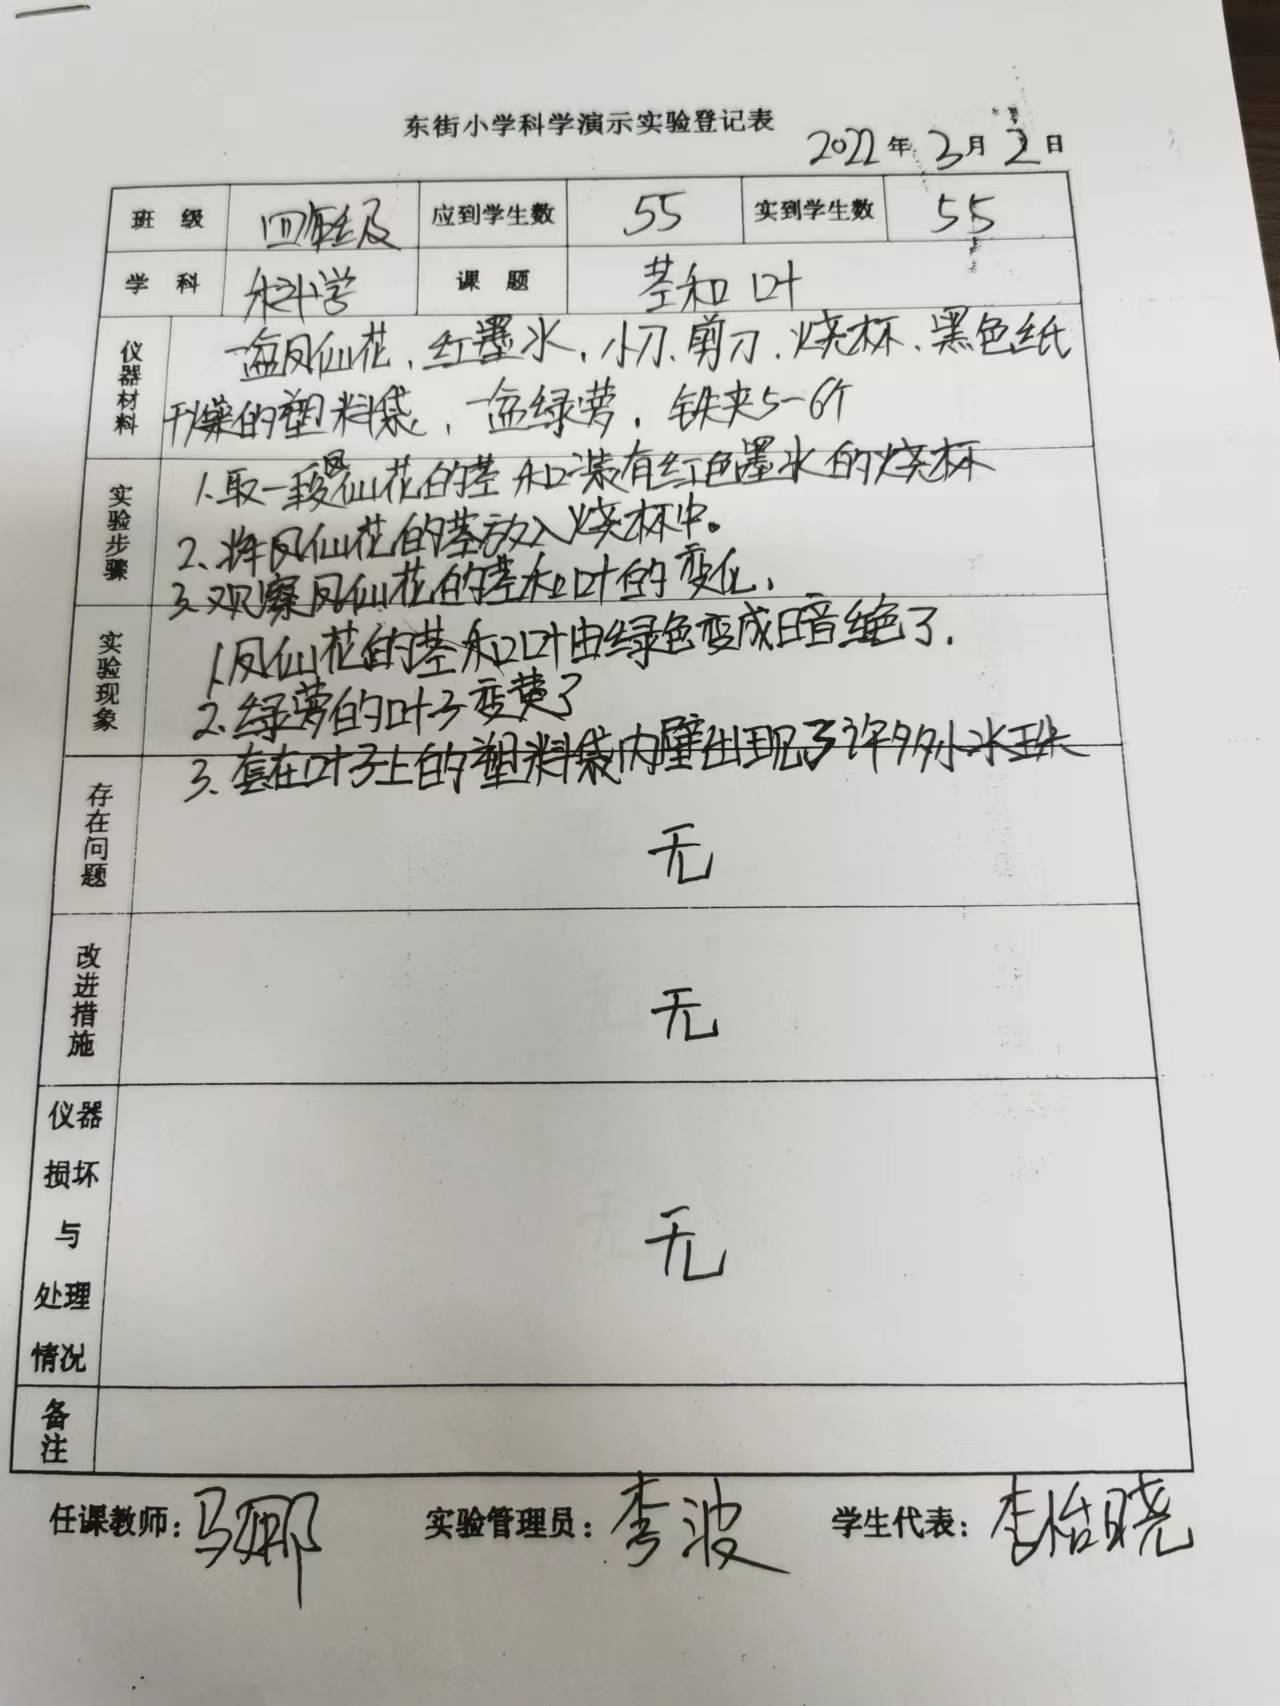 东街小学科学演示实验登记表
2022年3月2日
班 级 四年级 应到学生数 55 实到学生数 55
学 科 科学 课 题 茎和叶
仪器材料
一盆凤仙花、红墨水、小刀、剪刀、烧杯、黑色纸
干燥的塑料袋、一盆绿萝、铁夹5-6个
实验步骤
1.取一段凤仙花的茎和装有红色墨水的烧杯
2.将凤仙花的茎放入烧杯中。
3.观察凤仙花的茎和叶的变化.
实验现象
1.凤仙花的茎和叶由绿色变成暗红色了.
2.绿萝的叶子变黄了
3.套在叶子上的塑料袋内壁出现了许多小水珠
存在问题
无
改进措施
无
仪器
损坏
与
处理
情况
无
备注
任课教师:马娜 实验管理员:李波 学生代表:李怡晓